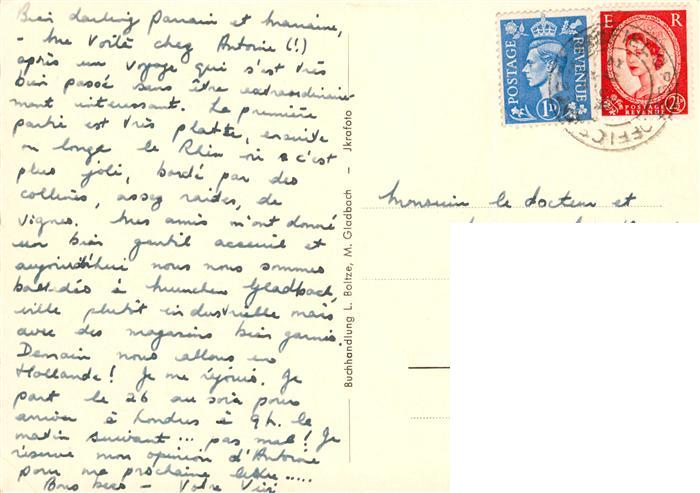 Bien darling Parrain et marraine,
- Me voilà chez Antoine (!)
après un voyage qui s'est très
bien passé sans être extraordinaire-
ment intéressant. La première
partie est très platte, ensuite
on longe le Rhin où c'est
plus joli, bordé par des
collines, assez raides, de
vignes. Mes amis m'ont donné
un bien gentil acceuil et
aujourd'hui nous nous sommes
baladés à Muenchen Gladbach,
ville plutôt industrielle mais
avec des magasins bien garnis.
Demain nous allons en
Hollande! Je me réjouis. Je
part le 26 au soir pour
arriver à Londres à 9h. le
matin suivant... pas mal! Je
réserve mon opinion d'Antoine
pour ma prochaine lettre.....
Bons becs - Votre
Buchhandlung L. Boltze, M. Gladbach - Jkrofoto
POSTAGE
REVENUE
1D
E R
POSTAGE
REVENUE
2½
OFFICE
Monsieur le docteur et